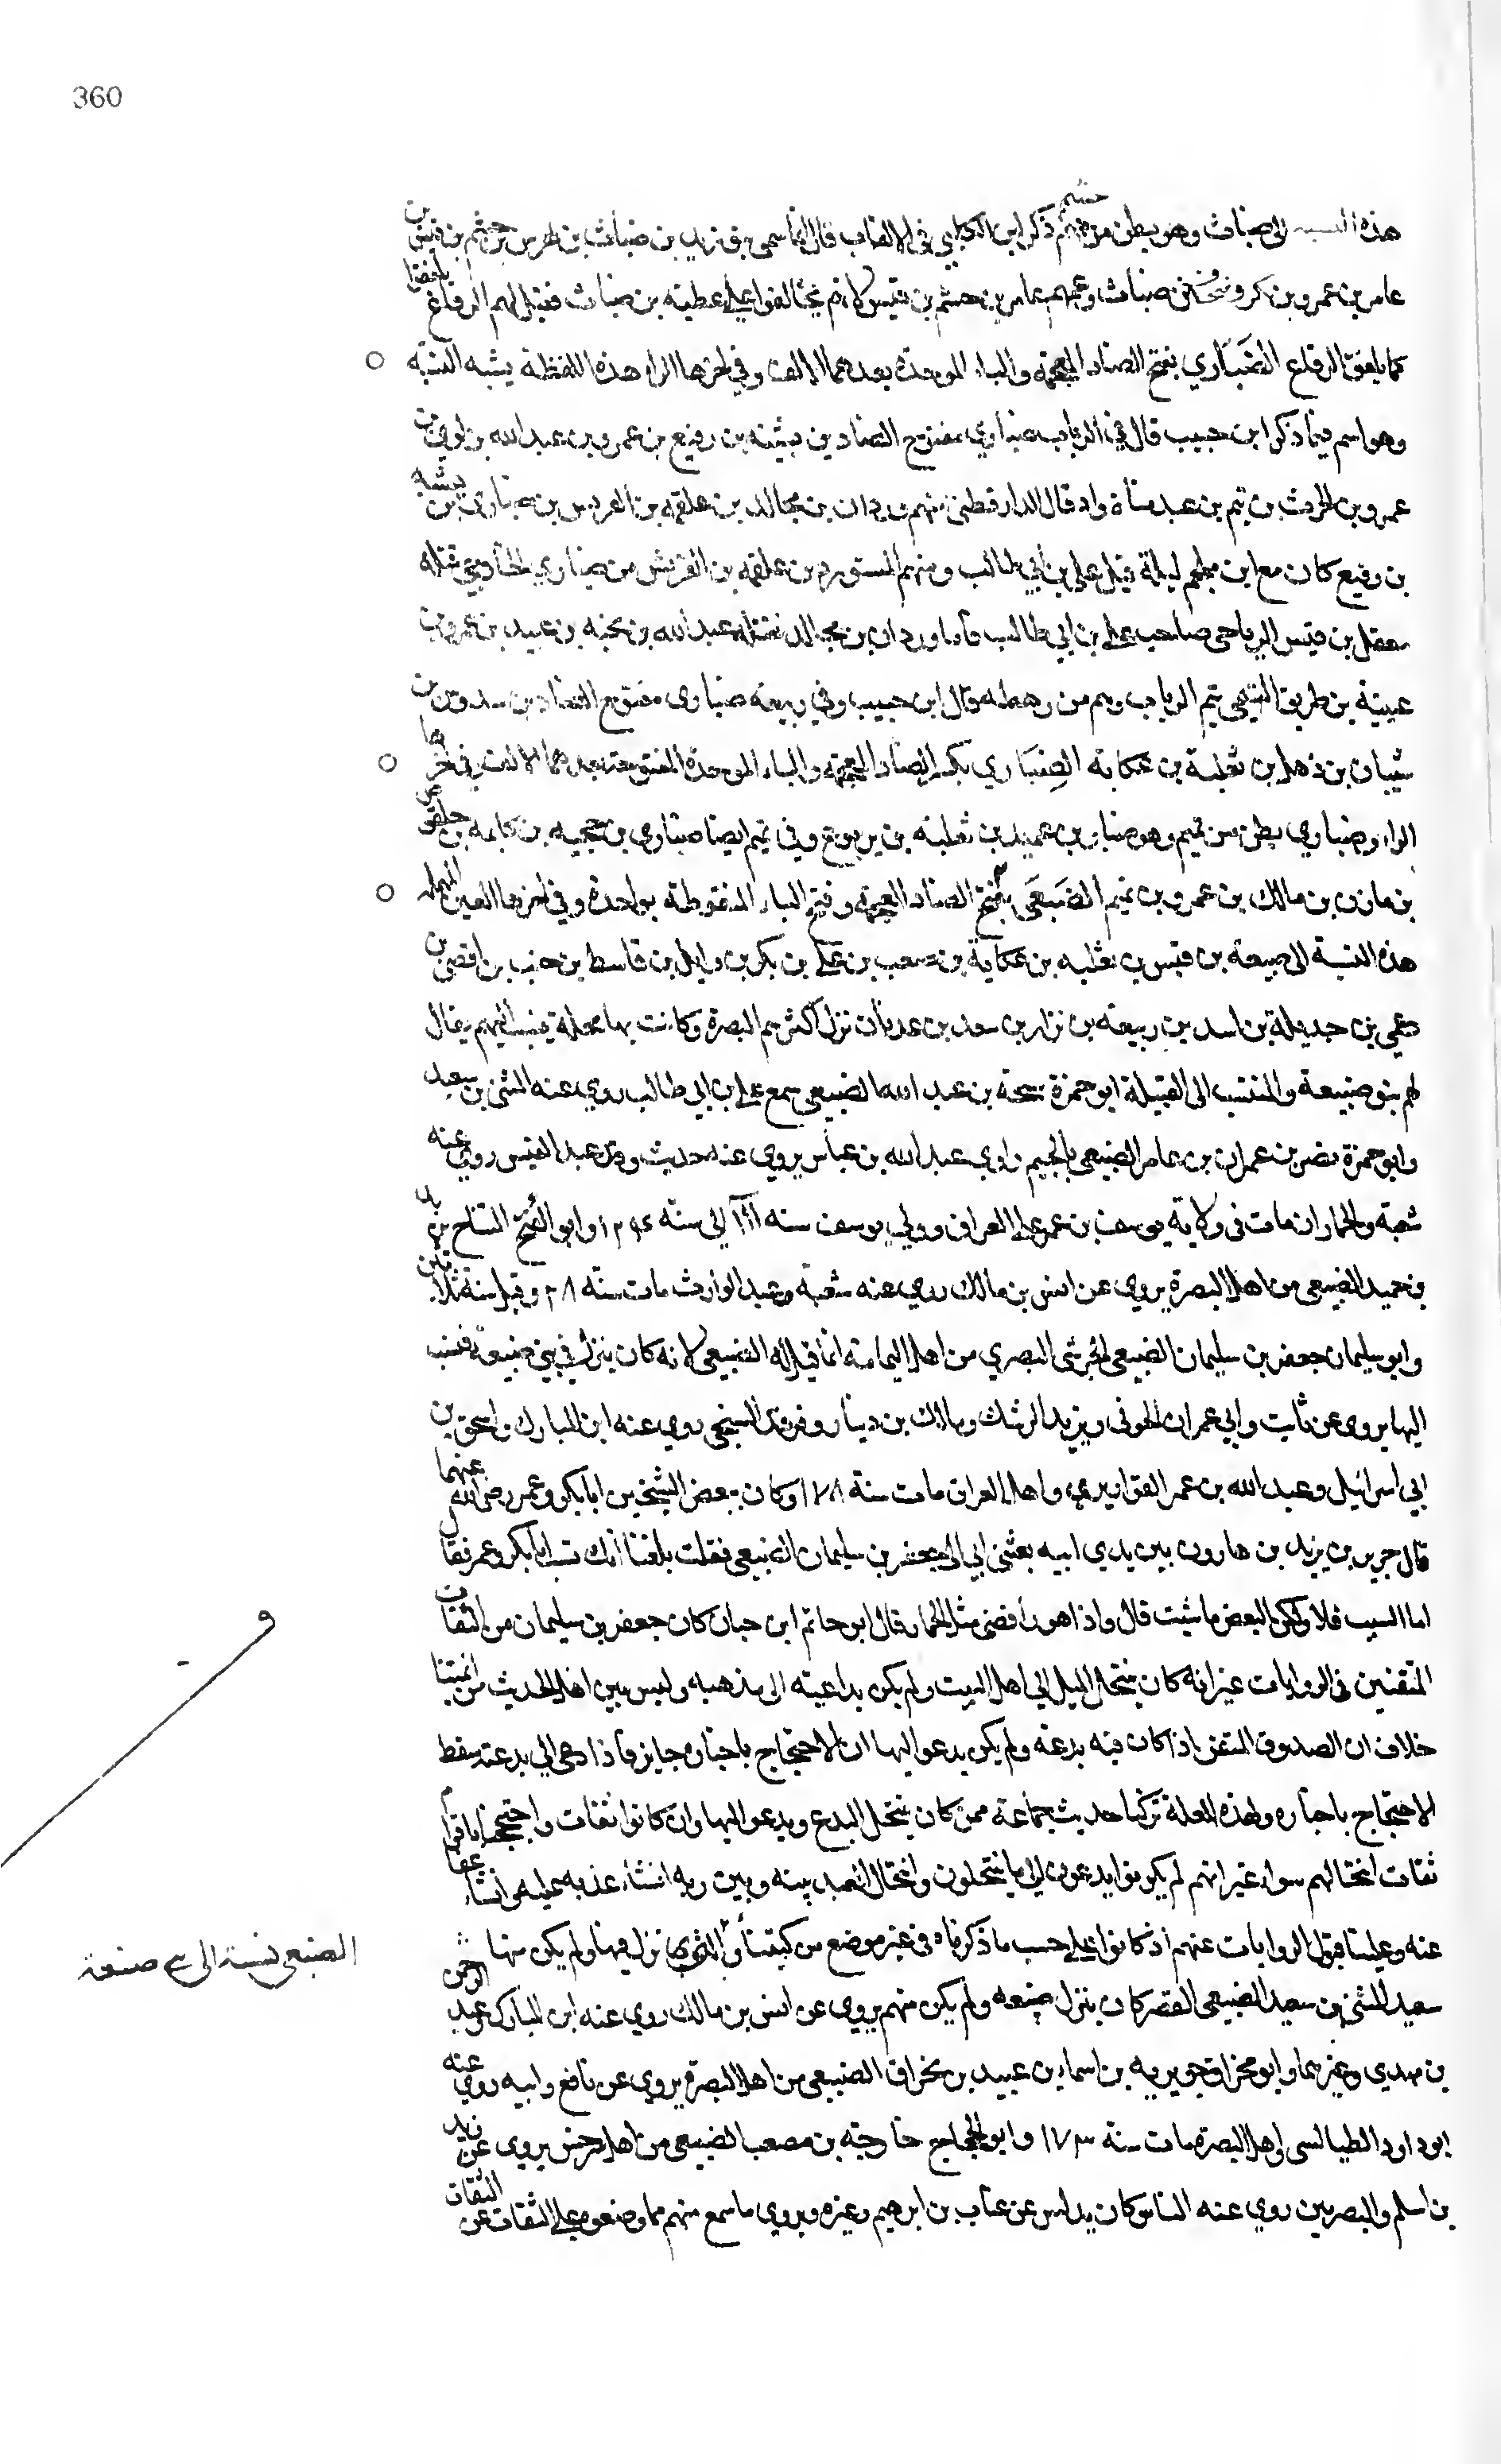 360
هذه النسبة الى ضباث وهو بطن من جشم ذكر ابن الكلبي في الالقاب قال انما سمي بنو زيد بن ضباث بن نهرس بن جشم بن قيس بن
عامر بن عمرو بن بكر وضباث وعمهم عامر بن جشم بن قيس لانهم تحالفوا على عطية بن ضباث فقيل لهم الرقاع تلفقوا
كما تلفق الرقاع الضَبَاري بفتح الضاد المعجمة والباء الموحدة بعدهما الالف وفي اخرها الراء هذه اللفظة يشبه النسبة
وهو اسم فيما ذكر ابن حبيب قال في الرباب ضباري مفتوح الضاد بن نشبة بن ربيع بن عمرو بن عبد الله بن لوي بن
عمرو بن الحرث بن تيم بن عبد مناة واد قال الدارقطني منهم وردان بن مجالد بن علقمة بن الفريش بن ضباري بن نشبه
بن ربيع كان مع ابن ملجم ليلة قتل علي بن ابي طالب ومنهم المستورد بن علقمه بن الفريش من ضباري الخارجي قتله
معقل بن قيس الرياحي صاحب علي بن ابي طالب فاما وردان بن مجالد فقتله عبد الله بن نجبه بن عبيد بن عمرو بن
عيينة بن طريق التيمي تيم الرباب وهم من رهطه وقال ابن حبيب وفي ربيعه ضباري مفتوح الضاد بن سدوس بن
شيبان بن ذهل بن ثعلبة بن عكابة الضِبَاري بكسر الضاد المعجمة والباء الموحدة المفتوحة بعدهما الالف وفي اخرها
الراء وضباري بطن من تميم وهو ضباري بن عبيد بن ثعلبة بن يربوع وفي تميم ايضا ضباري بن حجية بن كابيه بن حرقوص
بن مازن بن مالك بن عمرو بن تميم الضُبَعي بضم الضاد المعجمة وفتح الباء المنقوطة بواحدة وفي اخرها العين المهملة
هذه النسبة الى ضبيعة بن قيس بن ثعلبه بن عكابة بن صعب بن علي بن بكر بن وايل بن قاسط بن هنب بن افصى بن
دعمي بن جديلة بن اسد بن ربيعة بن نزار بن معد بن عدنان نزل اكثرهم البصرة وكانت بها محلة ينسب اليهم يقال
لهم بنو ضبيعة والمنتسب الى القبيلة ابو حمزة شيحة بن عبد الله الضبيعي سمع علي بن ابي طالب روي عنه المثنى بن سعيد
وابو جمرة نصر بن عمران بن عامر الضبيعي بالجيم راوي عبد الله بن عباس يروي عنه حديث وفد عبد القيس روي عنه
شعبة والحمادان مات في ولاية يوسف بن عمر على العراق وولي يوسف سنه ١٢١ الى سنة ١٢٤ وابو التياح يزيد
بن حميد الضبيعي من اهل البصرة يروي عن انس بن مالك روي عنه شعبه وعبد الوارث مات سنة ١٢٨ وقيل سنة ثلاثين
وابو سليمان جعفر بن سليمان الضبيعي الحرشي البصري من اهل اليمامة انما قيل له الضبيعي لانه كان ينزل في بني ضبيعة فنسب
اليها يروي عن ثابت وابي عمران الجوني ويزيد الرشك ومالك بن دينار وفرقد السبخي روي عنه ابن المبارك واسحق بن
ابي اسرائيل وعبد الله بن عمر القواريري واهل العراق مات سنة ١٧٨ وكان يبغض الشيخين ابا بكر وعمر رضي الله عنهما
قال جرير بن يزيد بن هارون بين يدي ابيه بعثني ابي الى جعفر بن سليمان الضبيعي فقلت بلغنا انك تسب ابا بكر وعمر فقال
اما السب فلا ولكن البغض ما شيت قال واذا هو رافضي مثل الحمار قال ابو حاتم ابن حبان كان جعفر بن سليمان من الثقات
المتقنين في الروايات غير انه كان ينتحل الميل الى اهل البيت ولم يكن بداعية الى مذهبه وليس بين اهل الحديث من ائمتنا
خلاف ان الصدوق المتقن اذا كان فيه بدعة ولم يكن يدعو اليها ان الاحتجاج باخباره جايز فاذا دعى الى بدعته سقط
الاحتجاج باخباره ولهذه العلة تركنا حديث جماعة ممن كان ينتحل البدع ويدعو اليها وان كانوا ثقات واحتججنا باقوام
ثقات انتحالهم سواء غير انهم لم يكونوا يدعون الى ما ينتحلون وانتحال العبد بينه وبين ربه ان شاء عذبه عليه وان شاء عفا
عنه وعلينا قبول الروايات عنهم اذ كانوا على حسب ما ذكرناه في غير موضع من كتبنا والذي نزل فيها ولم يكن منها
سعيد المثنى بن سعيد الضبيعي القصير كان ينزل ضبيعه ولم يكن منهم يروي عن انس بن مالك روي عنه ابن المبارك وعبد الرحمن
بن مهدي وغيرهما وابو مخراق جويريه بن اسماء بن عبيد بن مخراق الضبيعي من اهل البصرة يروي عن نافع وابيه روي عنه
ابو داود الطيالسي واهل البصرة مات سنة ١٧٣ وابو الحجاج خارجة بن مصعب الضبيعي من اهل سرخس يروي عن زيد
بن اسلم والبصريين روي عنه الناس كان يدلس عن غياث بن ابرهيم وغيره ويروي ما سمع منهم مما وضعوه على الثقات عن الثقات
الضبعي نسبة الى ضبيعة